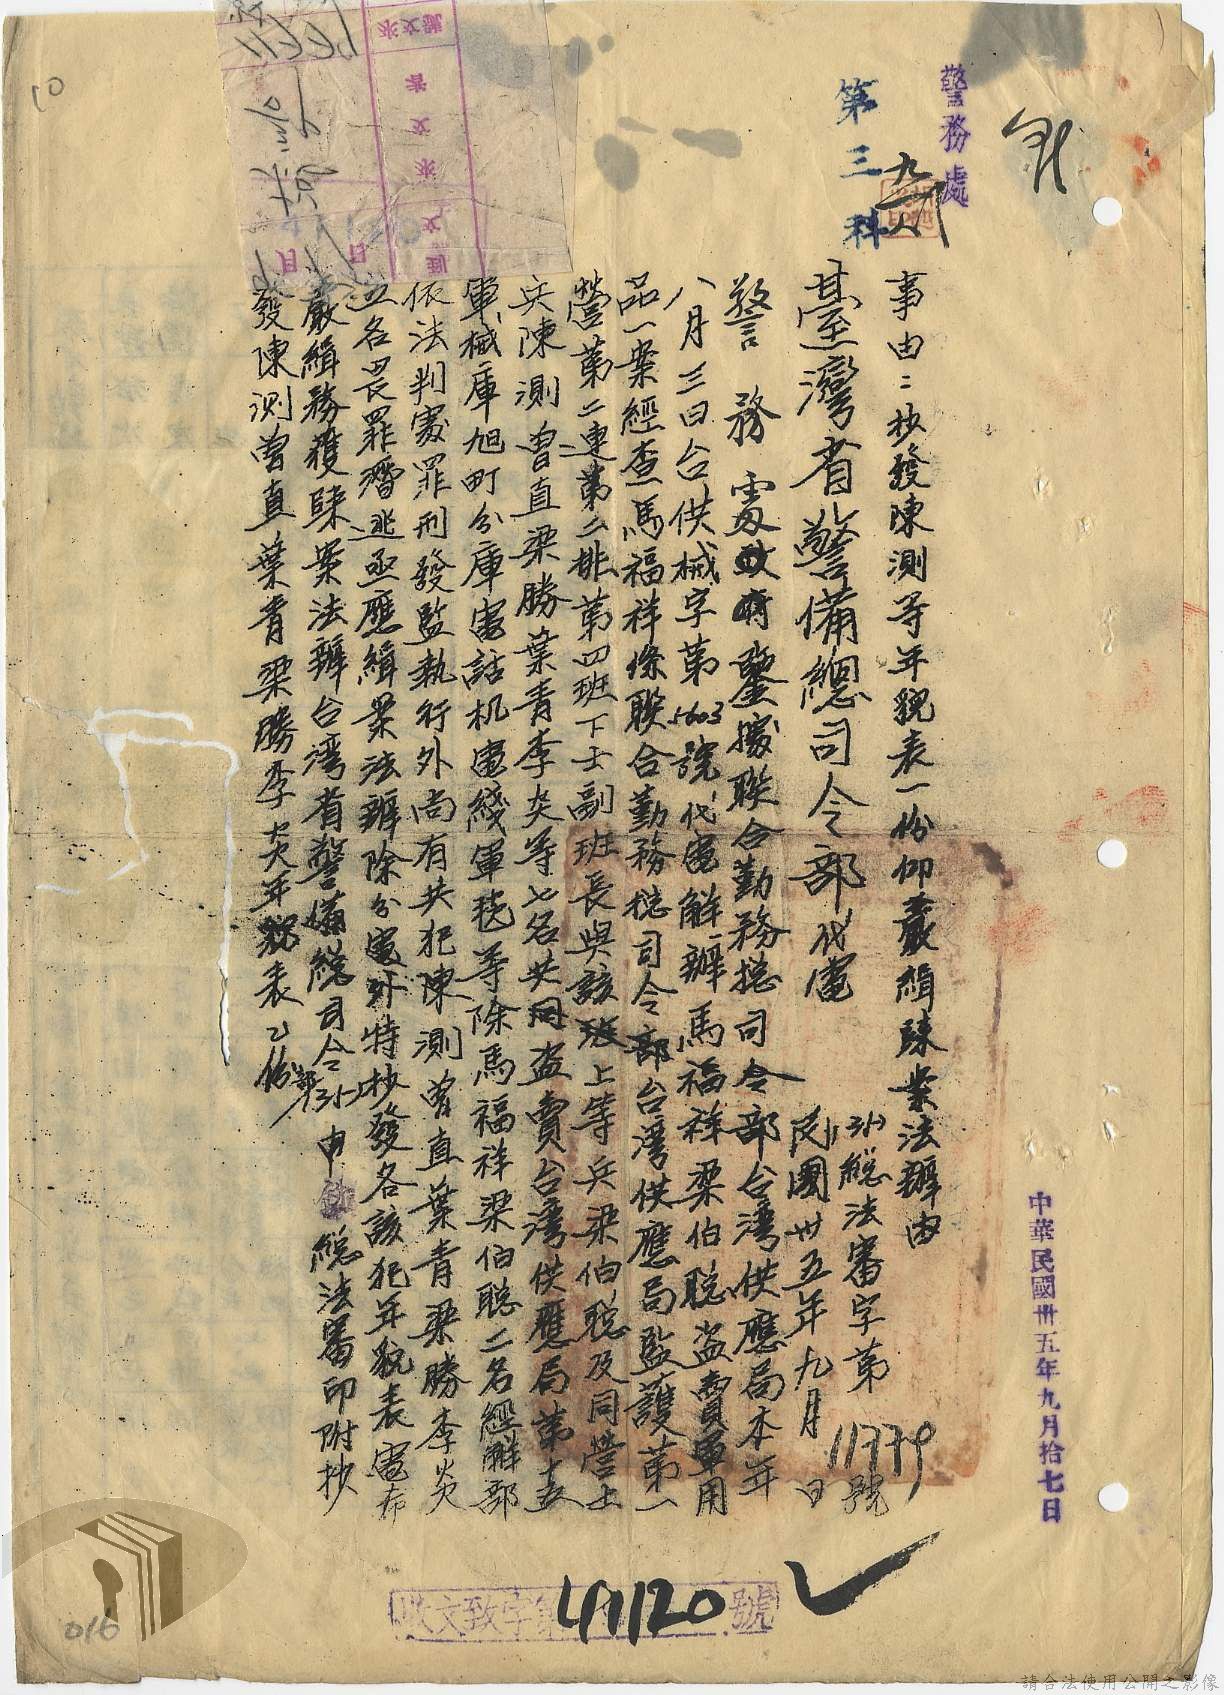 警務處
第三科
中華民國卅五年九月拾七日
事由:抄發陳測等年貌表一份仰嚴緝歸案法辦由
臺灣省警備總司令部代電
總法審字第11779號
民國卅五年九月 日
警務處
鑒據聯合勤務總司令部台灣供應局本年
八月三日台供械字第5603號代電解辦馬福祥梁伯聰盜賣軍用
品一案經查馬福祥係聯合勤務總司令部台灣供應局監護第一
營第二連第二排第四班下士副班長與該班上等兵梁伯聰及同營士
兵陳測曾直梁勝葉青李炎等七名共同盜賣台灣供應局第十五
軍械庫旭町分庫電話机電綫軍毯等除馬福祥梁伯聰二名經解部
依法判處罪刑發監執行外尚有共犯陳測曾直葉青梁勝李炎
五名畏罪潛逃亟應緝案法辦除分電外特抄發各該犯年貌表電希
嚴緝務獲歸案法辦台灣省警備總司令部申總法審印附抄
發陳測曾直葉青梁勝李炎年貌表乙份
收文致字第41120號
來文
來文
月 日
01
016
請合法使用公開之影像